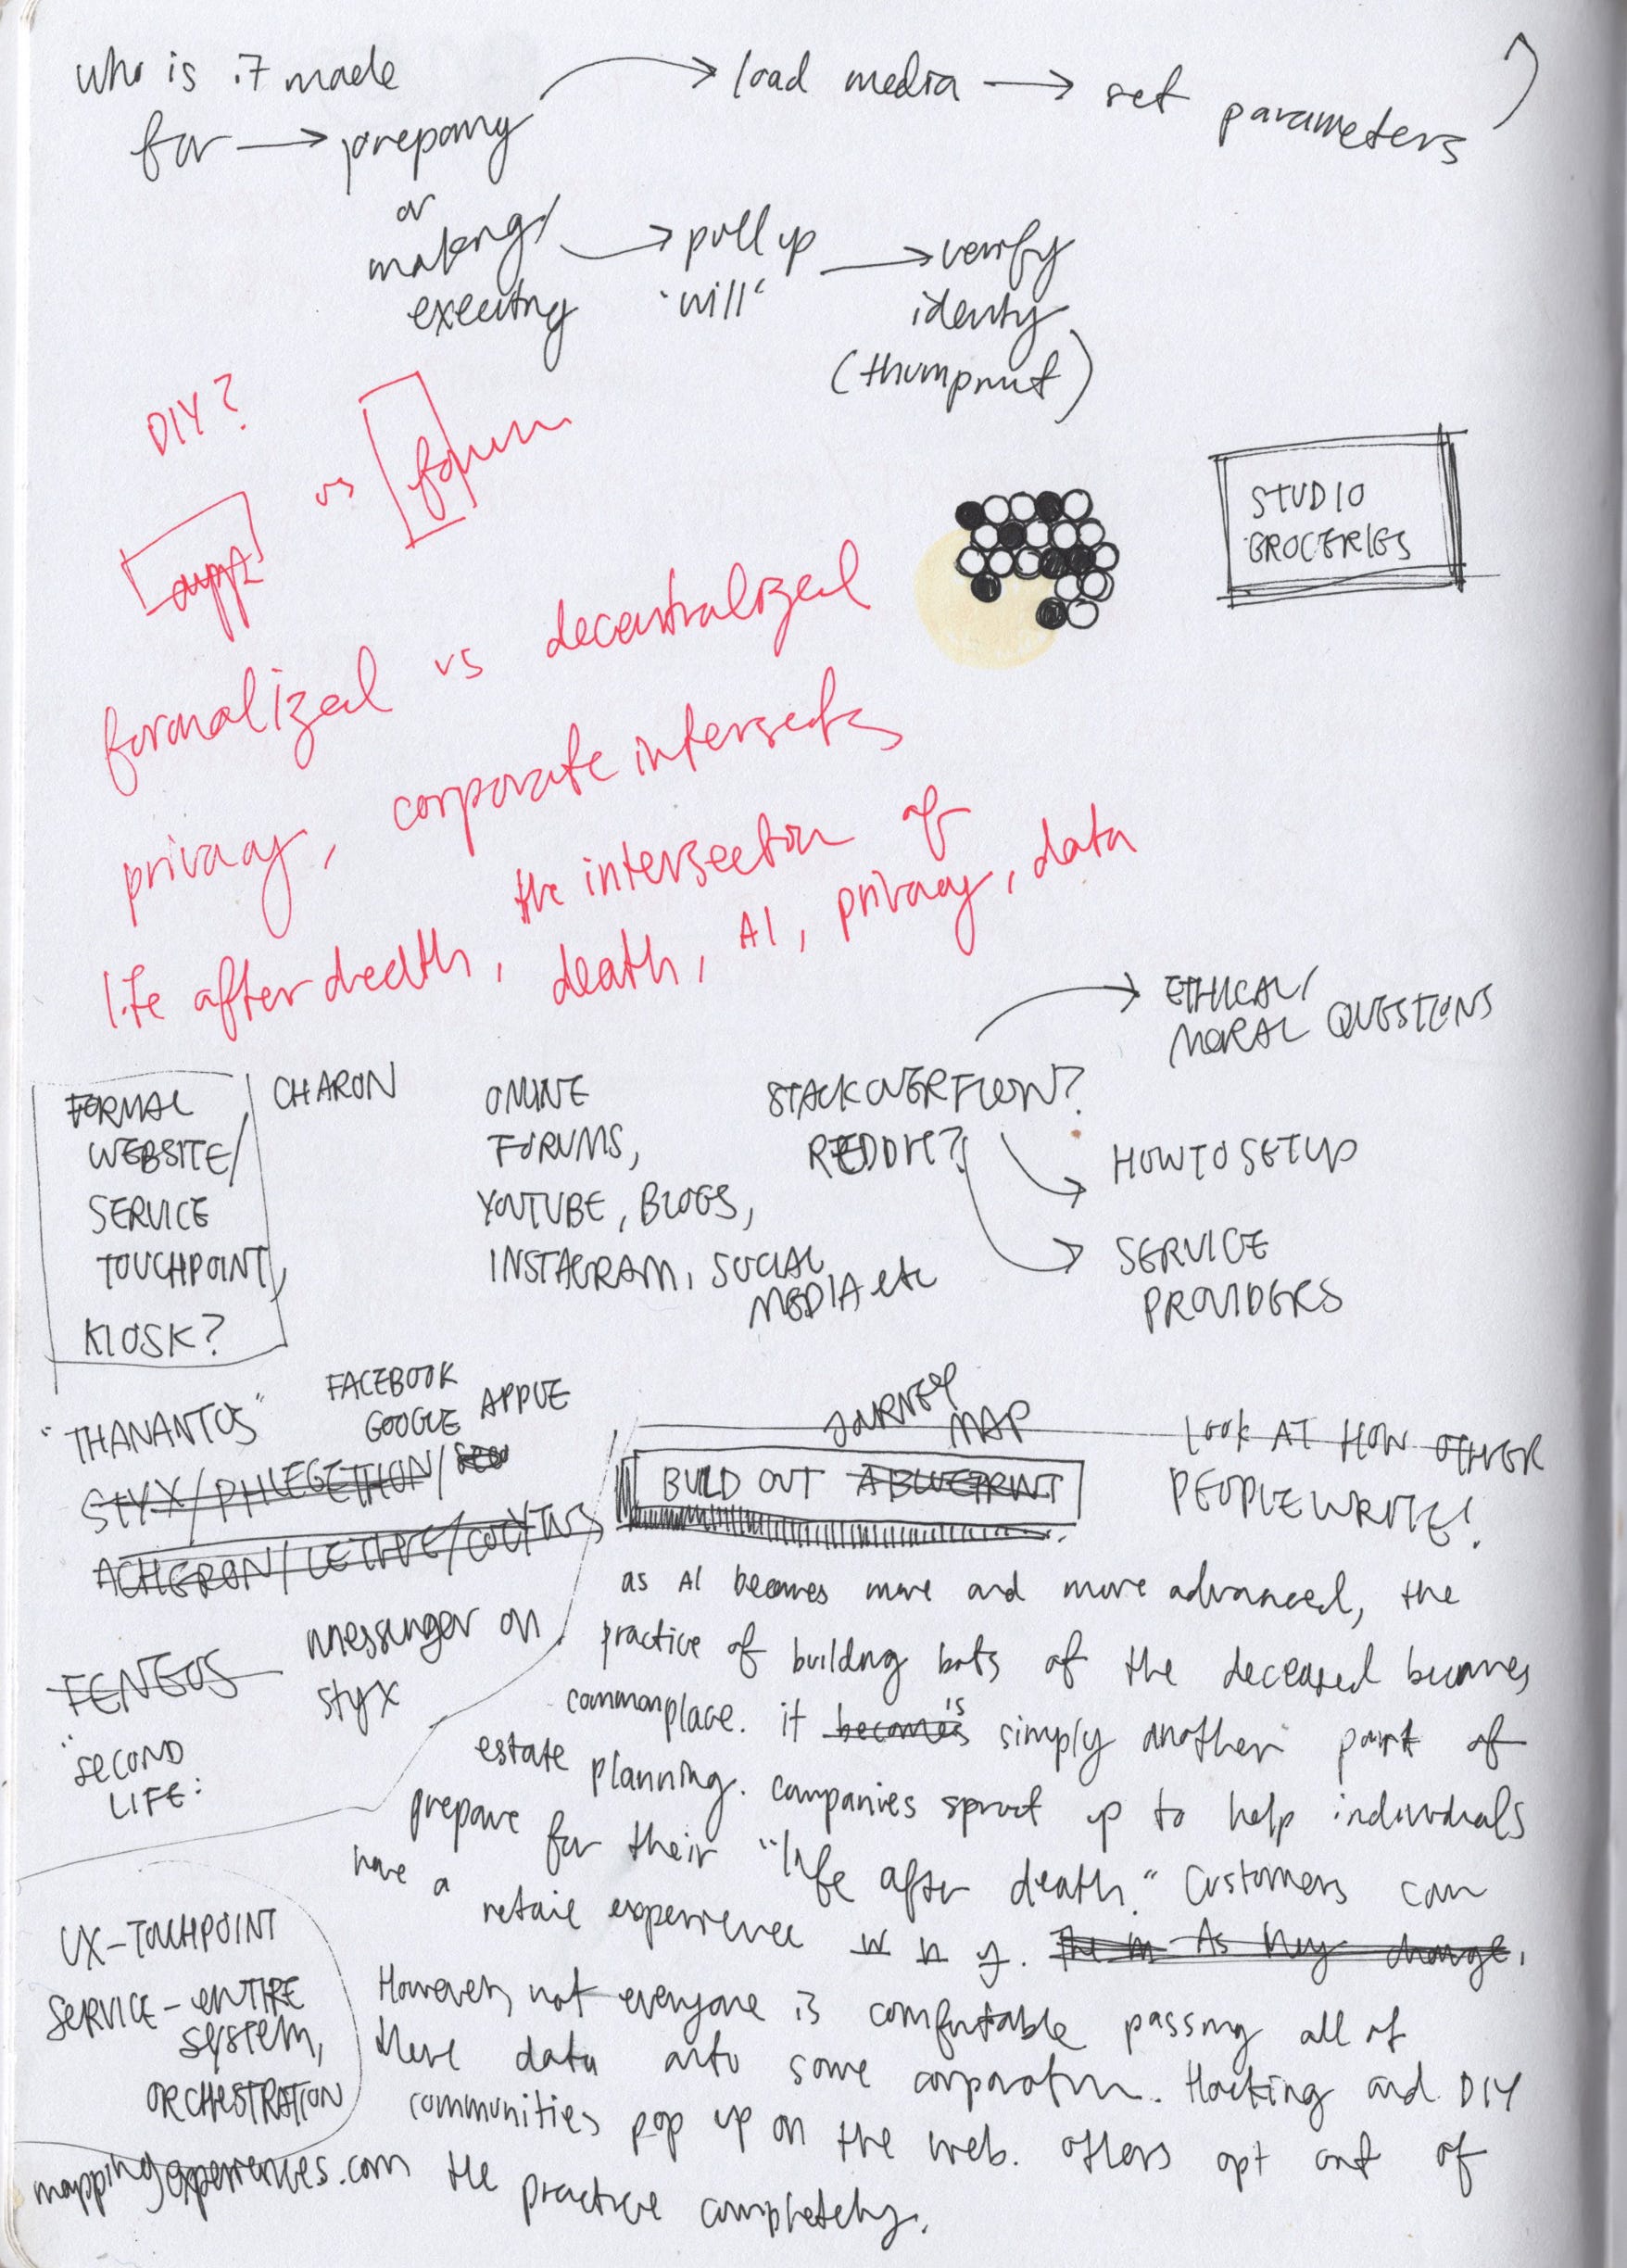 who is it made
for → preparing → load media → set parameters
or
making/
executing → pull up
'will' → verify
identity
(thumprint)
DIY?
appt vs forum
STUDIO
GROCERIES
formalized vs decentralized
privacy, corporate intersects
life after death, the intersection of
death, AI, privacy, data
FORMAL
WEBSITE/
SERVICE
TOUCHPOINT,
KIOSK?
CHARON
ONLINE
FORUMS,
YOUTUBE, BLOGS,
INSTAGRAM, SOCIAL
MEDIA etc
STACKOVERFLOW?
REDDIT?
ETHICAL/
MORAL QUESTIONS
HOW TO SETUP
SERVICE
PROVIDERS
"THANANTOS"
FACEBOOK
GOOGLE APPLE
STYX/PHLEGETHON/
ACHERON/LETHE/COCYTUS
FENEOS
messenger on
styx
"SECOND
LIFE:
JOURNEY
MAP
BUILD OUT A BLUEPRINT
LOOK AT HOW OTHER
PEOPLE WRITE!
as AI becomes more and more advanced, the
practice of building bots of the deceased becomes
commonplace. it becomes is simply another part of
estate planning. companies sprout up to help individuals
prepare for their "life after death." Customers can
have a retail experience w x y. As they change.
However, not everyone is comfortable passing all of
there data onto some corporation. Hacking and DIY
communities pop up on the web. others opt out of
the practice completely.
UX-TOUHPOINT
SERVICE-ENTIRE
SYSTEM,
ORCHESTRATION
mappingexperiences.com